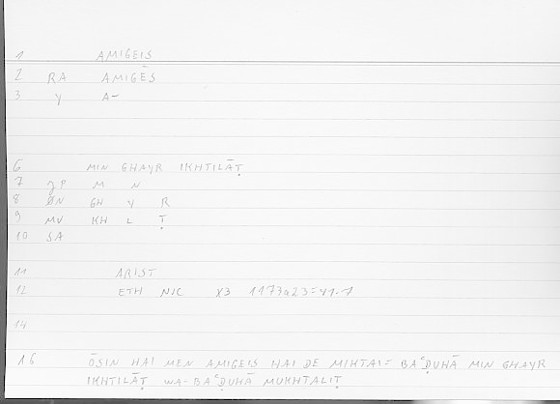 1 AMIGEIS
2 RA AMIGĒS
3 Y A-
6 MIN GHAYR IKHTILĀṬ
7 JP M N
8 ØN GH Y R
9 MV KH L Ṭ
10 SA
11 ARIST
12 ETH NIC X3 1173a23
14
16 ŌSIN HAI MEN AMIGEIS HAI DE MIKTAI= BAʿḌUHĀ MIN GHAYR
IKHTILĀṬ WA-BAʿḌUHĀ MUKHTALIṬ